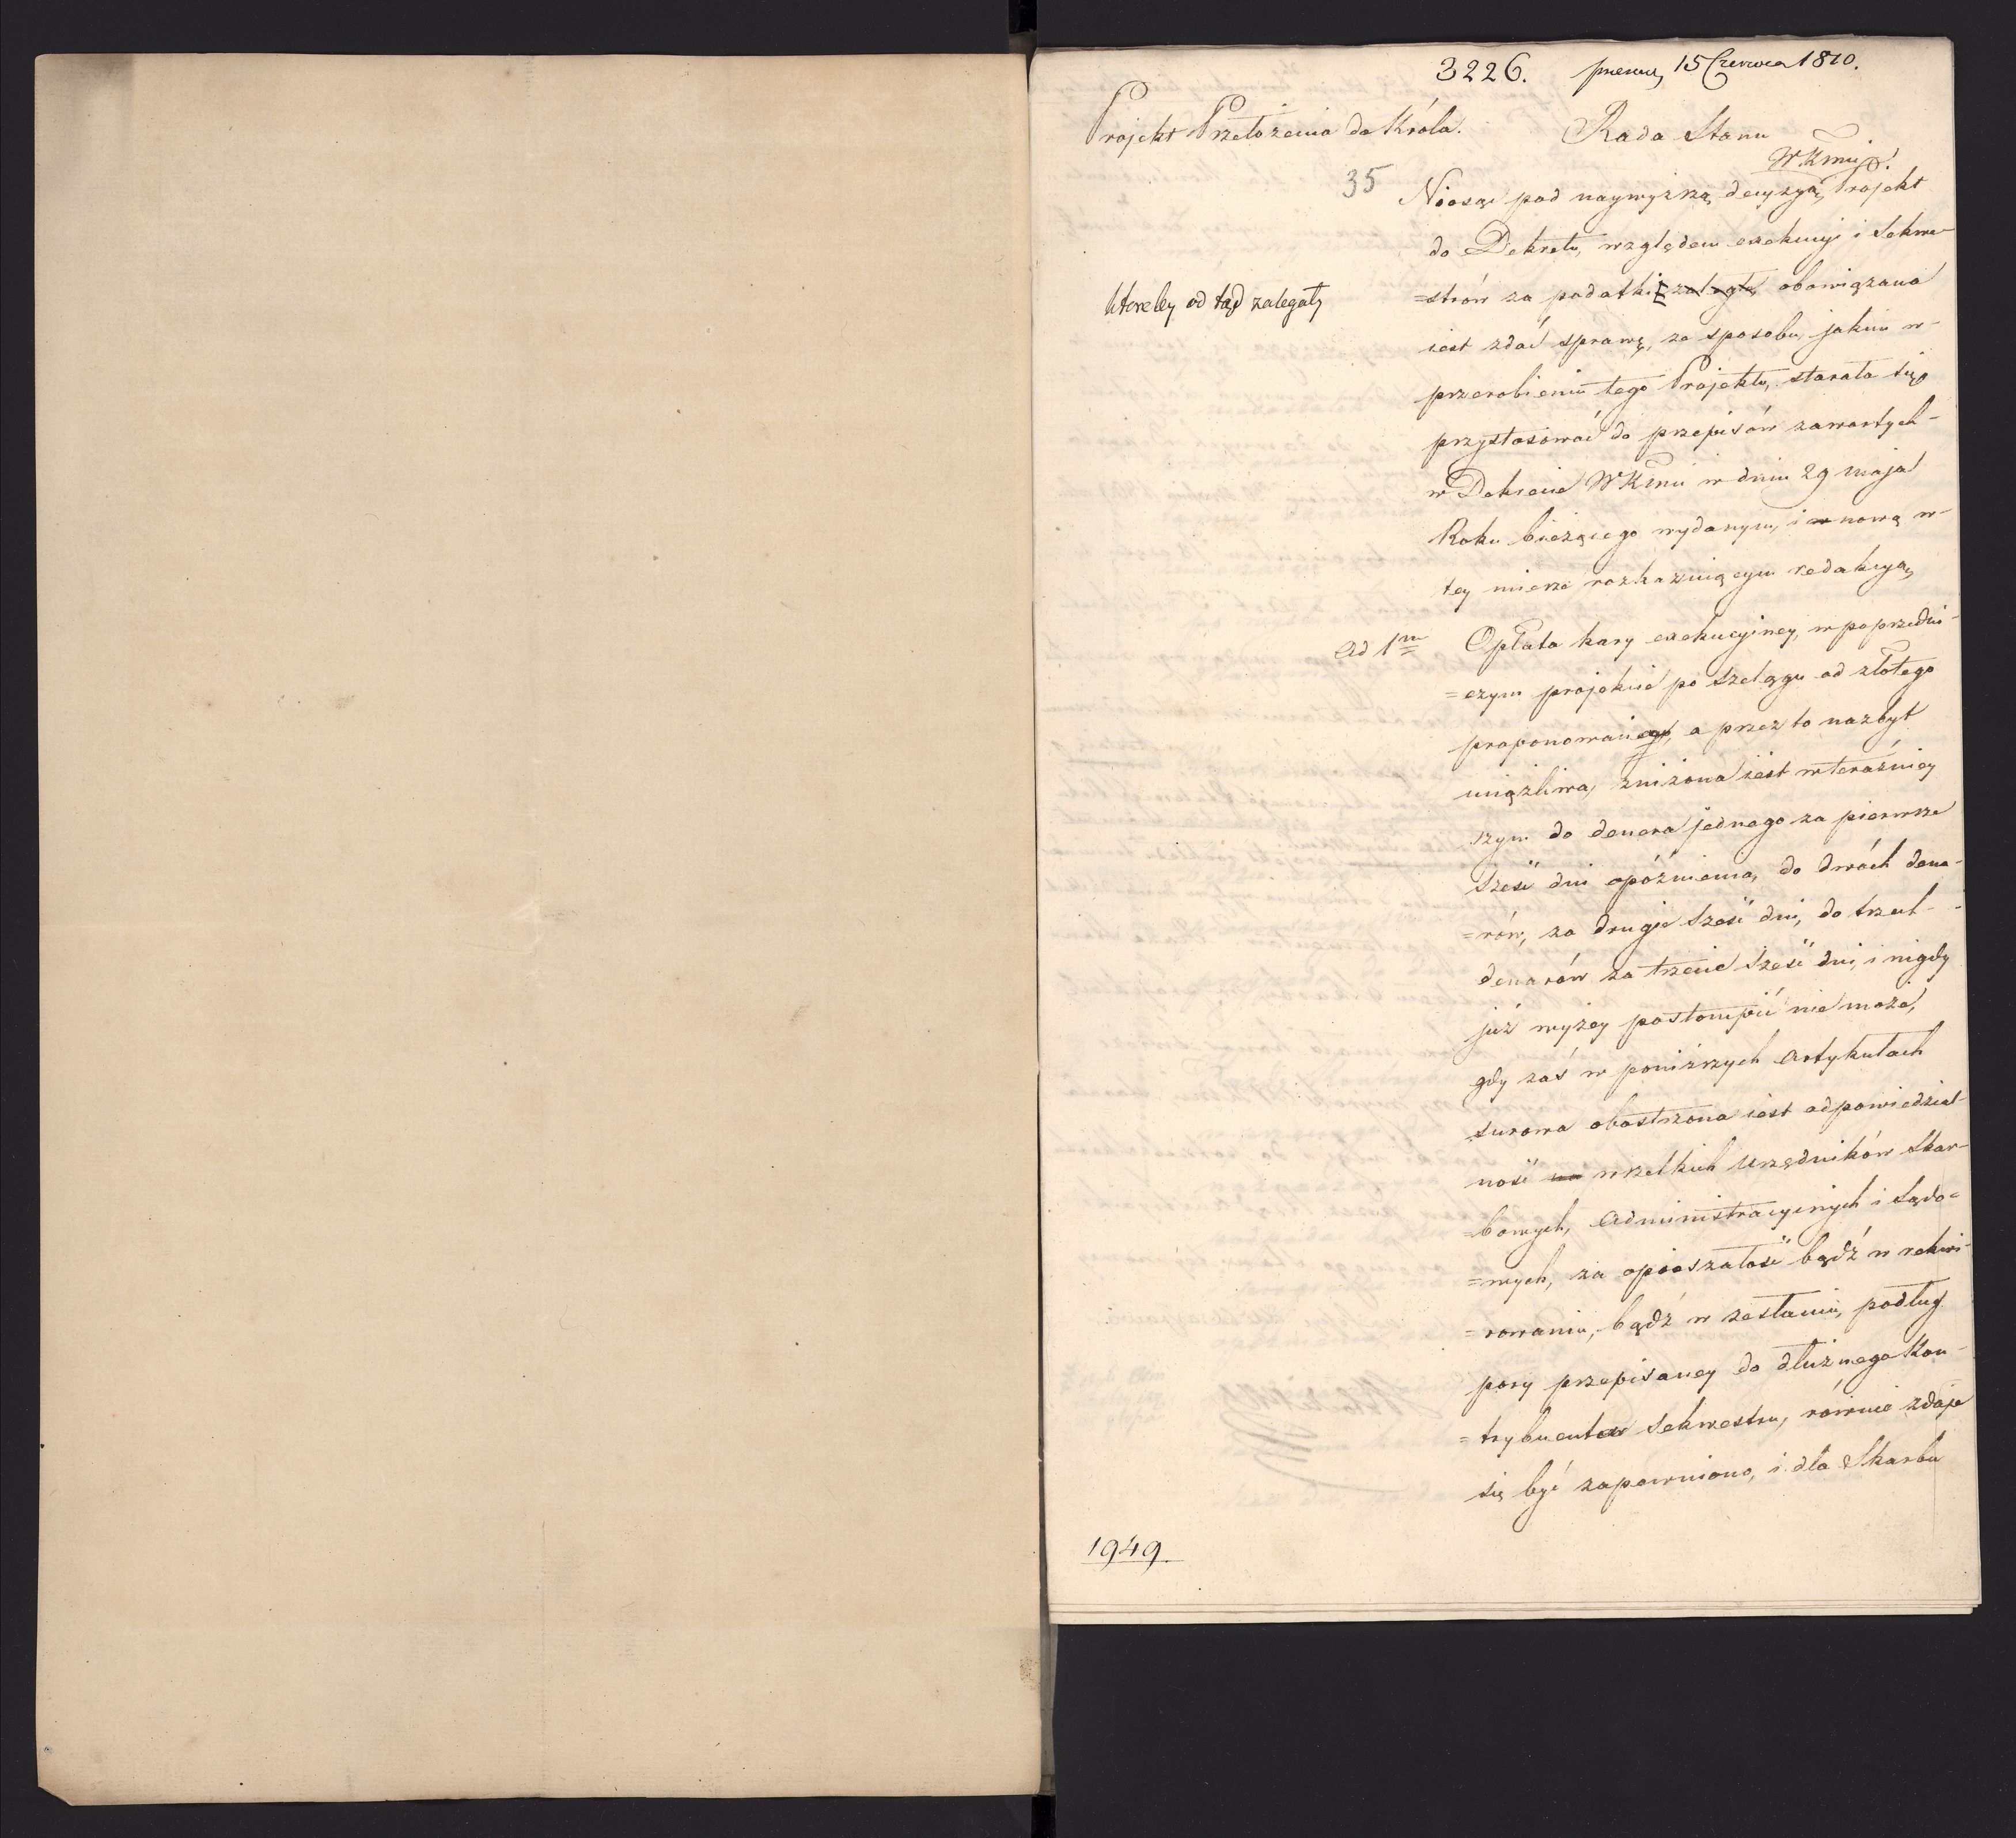 3226. 15 Czerwca 1810.
Projekt Przełożenia do Króla.
Rada Stanu
WKMci
35
Niosąc pod naywyższą decyzyą Projekt
do Dekretu, względem exekucyi i Sekwe-
=strów za podatki zaległe obowiązana
któreby od tąd zalegały
iest zdać sprawę, ze sposobu, jakim w-
przerobieniu tego Projektu, starała się
przystosować do przepisów zawartych-
w Dekrecie WKMci w dniu 29 Maja
Roku bieżącego wydanym, i nową w-
tey mierze rozkazuiącym redakcyą,
Ad 1m Opłata kary exekucyiney, w poprzedni-
=czym projekcie po Szelągu od złotego
proponowaney, a przez to nazbyt
uciążliwa, zniżona iest w teraźniey
szym do denera jednego za pierwsze
Sześć dni opóźnienia, do dwóch dena-
=rów, za drugie Sześć dni, do trzech-
denarów za trzecie Sześć dni, i nigdy
już wyżey postompić nie może,
gdy zaś w poniższych Artykułach
surowa obostrzona iest odpowiedzial-
ność wszelkich Urzędników Skar-
=bowych, Administracyinych i Sądo=
=wych, za opieszałość bądź w rekwi-
=rowaniu, bądź w zesłaniu, podług
pory przepisaney do dłużnego Kon-
=trybuenta Sekwestru, równie zdaje
się być zapewniono, i dla Skarbu
1949.